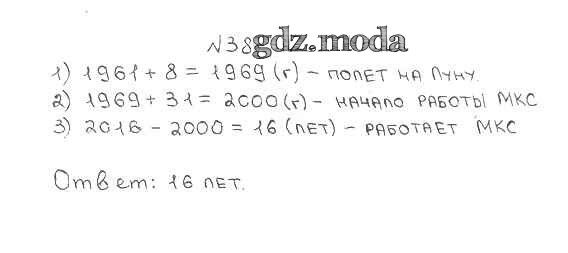 №38 gdz.moda
1) 1961 + 8 = 1969 (г) – ПОЛЕТ НА ЛУНУ.
2) 1969 + 31 = 2000 (г) – НАЧАЛО РАБОТЫ МКС
3) 2016 – 2000 = 16 (ЛЕТ) – РАБОТАЕТ МКС
Ответ: 16 ЛЕТ.